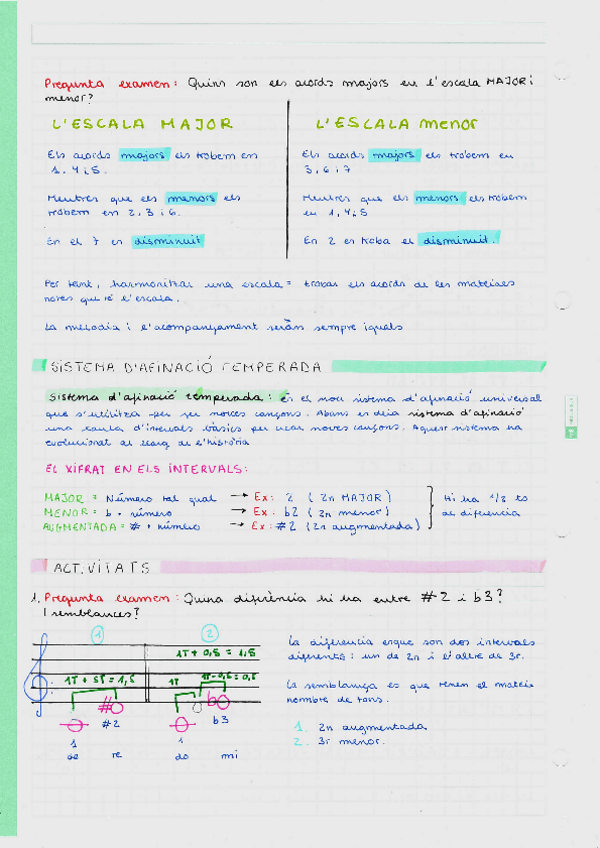 Pregunta examen: Quins son els acords majors en l'escala MAJOR i
menor?
L'ESCALA MAJOR
Els acords majors els trobem en
1, 4 i 5.
Mentres que els menors els
trobem en 2, 3 i 6.
En el 7 es disminuit
L'ESCALA menor
Els acords majors els trobem en
3, 6 i 7
Mentres que els menors els trobem
en 1, 4 i 5
En 2 es troba el disminuit.
Per tant, harmonitzar una escala = trobar els acords de les mateixes
notes que té l'escala.
La melodia i l'acompanyament seràn sempre iguals
SISTEMA D'AFINACIÓ TEMPERADA
Sistema d'afinació temperada: és el nou sistema d'afinació universal
que s'utilitza per fer noves cançons. Abans es deia sistema d'afinació
una taula d'intervals bàsics per crear noves cançons. Aquest sistema ha
evolucionat al llarg de l'història
EL XIFRAT EN ELS INTERVALS:
MAJOR = Número tal qual → Ex: 2 (2n MAJOR)
MENOR = b + número → Ex: b2 (2n menor)
AUGMENTADA = # + número → Ex: #2 (2n augmentada)
Hi ha 1/2 to
de diferència
ACTIVITATS
1. Pregunta examen: Quina diferència hi ha entre #2 i b3?
I semblances?
1
2
1T + 0,5 = 1,5
1T + ST = 1,5
1T
1T - 0,5 = 0,5
#
b
#2
b3
1
1
do
re
do
mi
La diferencia es que son dos intervals
diferents: un de 2n i l'altre de 3r.
La semblança es que tenen el mateix
nombre de tons.
1. 2n augmentada
2. 3r menor.